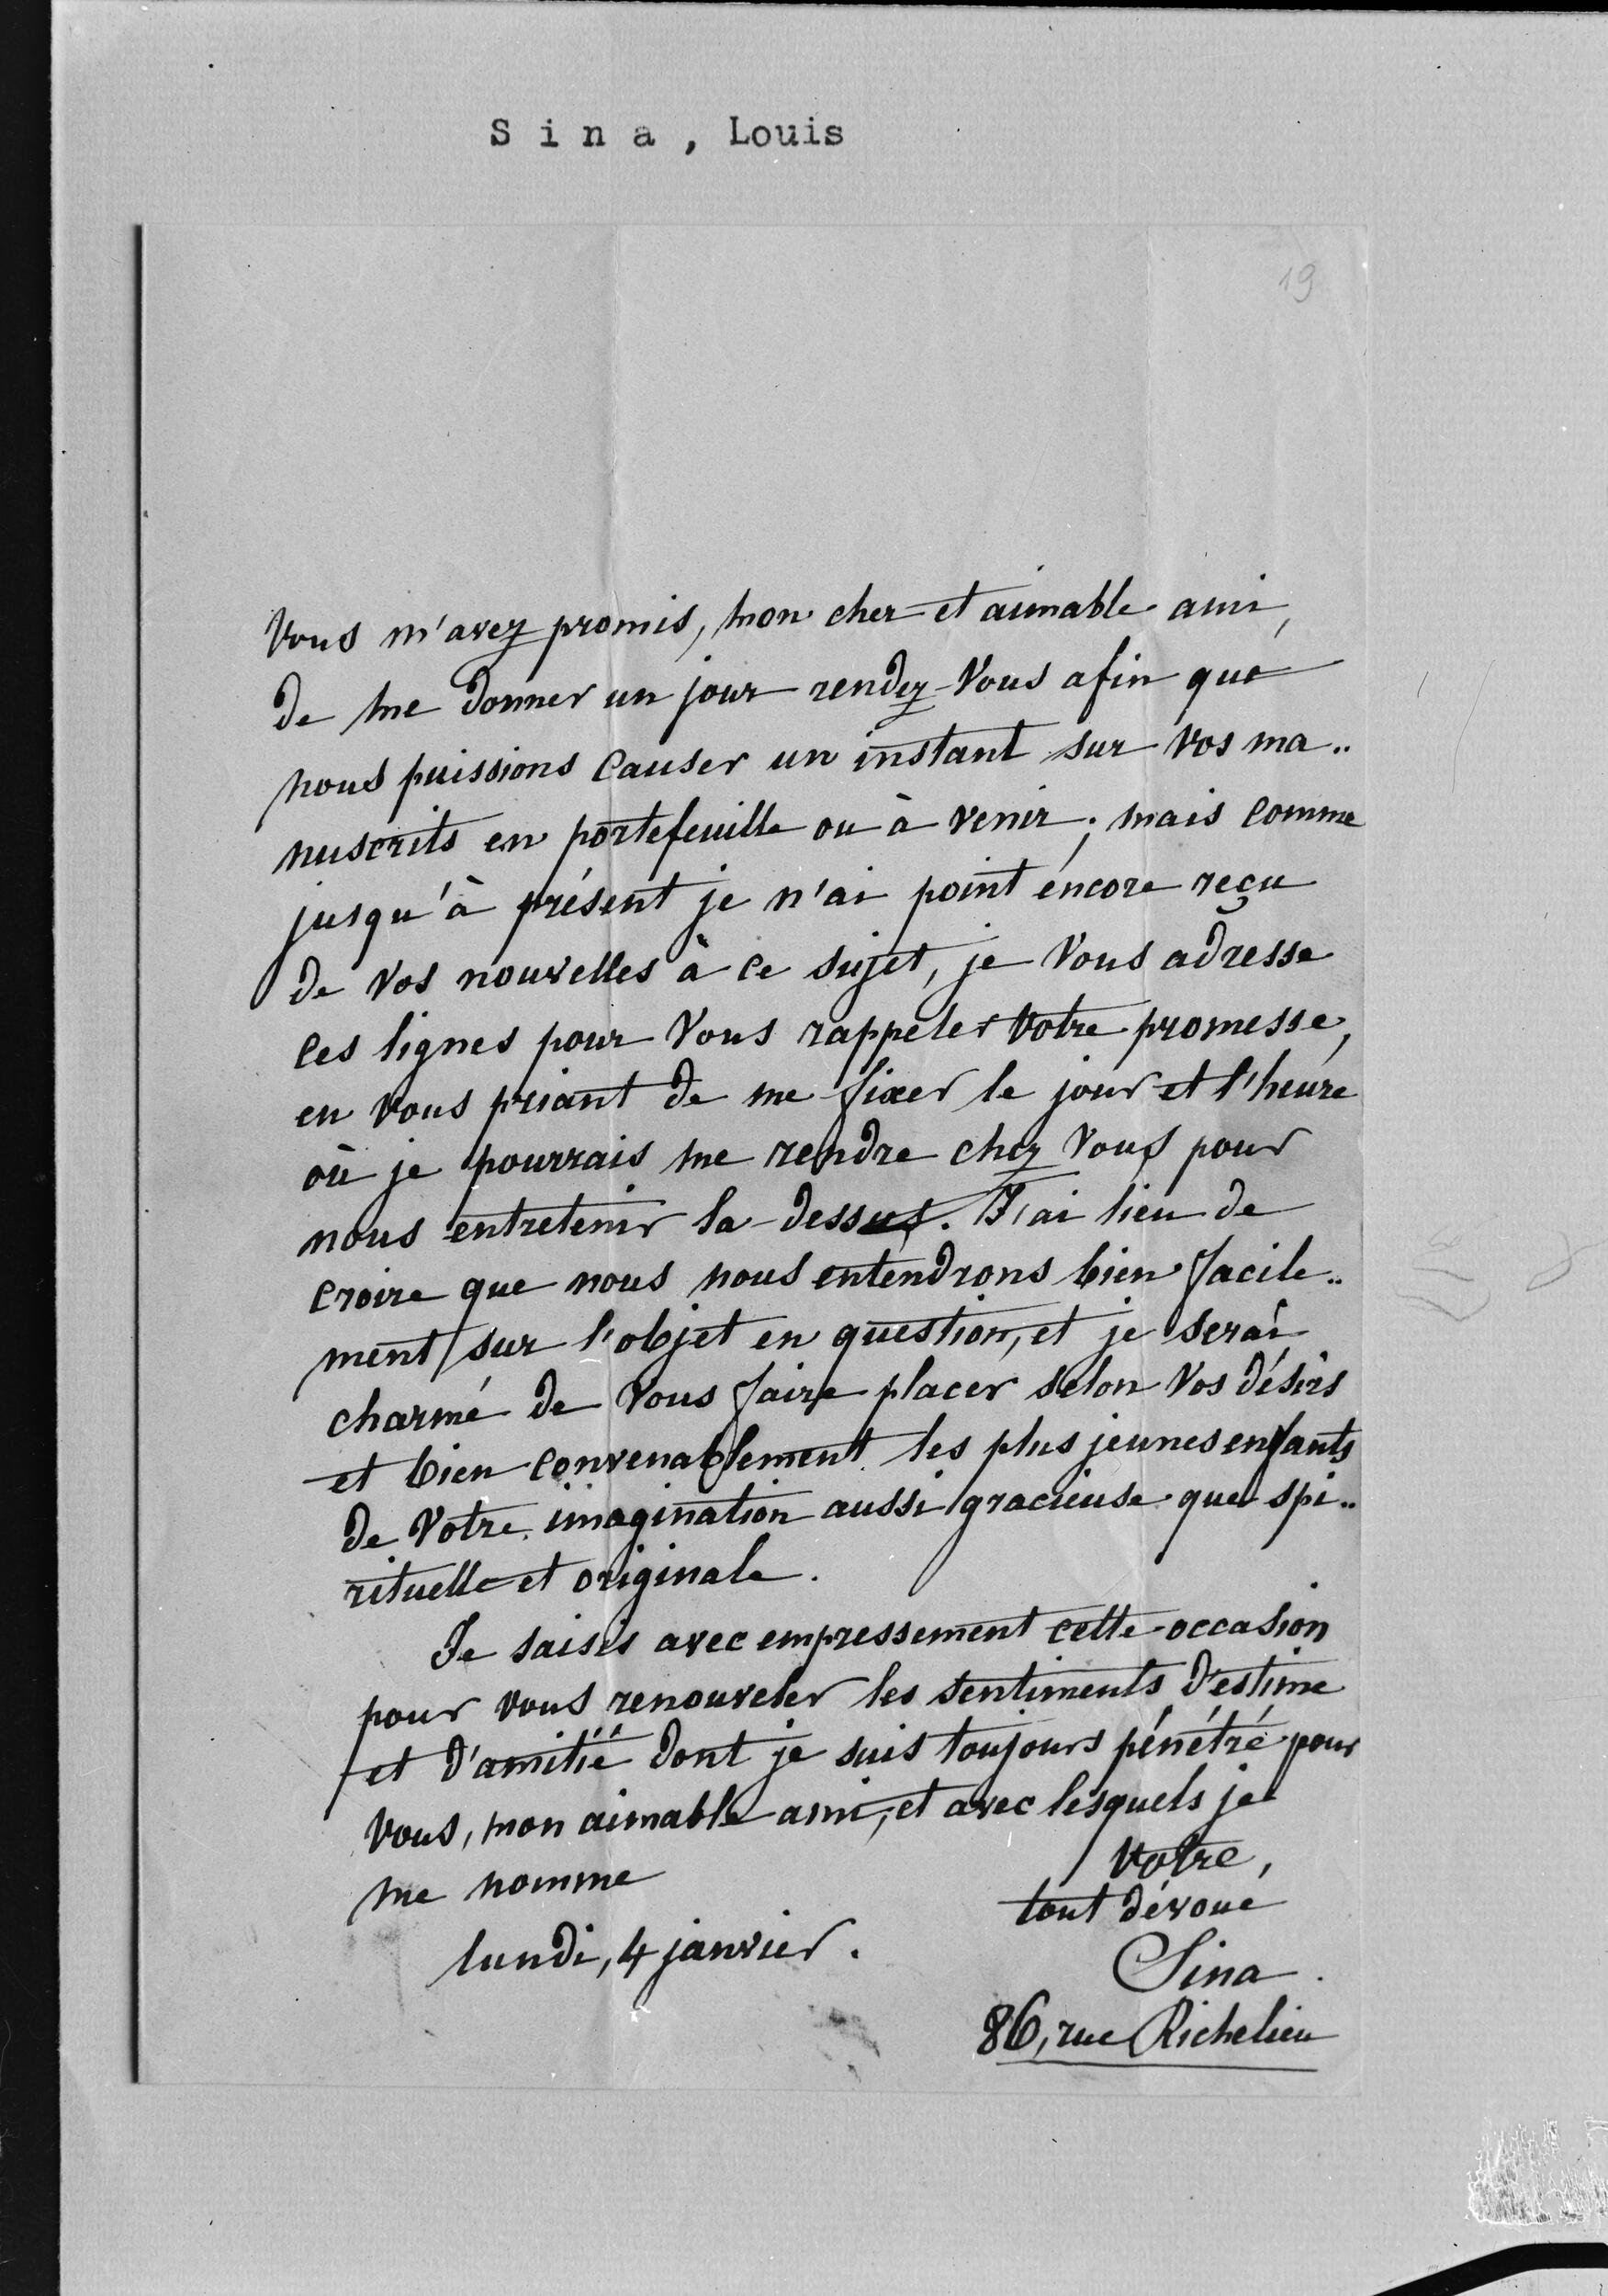 Sina, Louis
19
Vous m'avez promis, mon cher et aimable ami,
de me donner un jour rendez-Vous afin que
nous puissions causer un instant sur Vos ma..
nuscrits en portefeuille ou à venir; mais comme
jusqu'à présent je n'ai point encore reçu
de Vos nouvelles à ce sujet, je Vous adresse
ces lignes pour Vous rappeler Votre promesse,
en Vous priant de me fixer le jour et l'heure
où je pourrais me rendre chez Vous pour
nous entretenir la-dessus. J'ai lieu de
croire que nous nous entendrons bien facile..
ment sur l'objet en question, et je serai
charmé de Vous faire placer selon Vos désirs
et bien convenablement les plus jeunes enfants
de Votre imagination aussi gracieuse que spi..
rituelle et originale.
Je saisis avec empressement cette occasion
pour Vous renouveler les sentiments d'estime
et d'amitié dont je suis toujours pénétré pour
Vous, mon aimable ami, et avec lesquels je
me nomme
Votre,
tout dévoué
lundi, 4 janvier.
Sina.
86, rue Richelieu